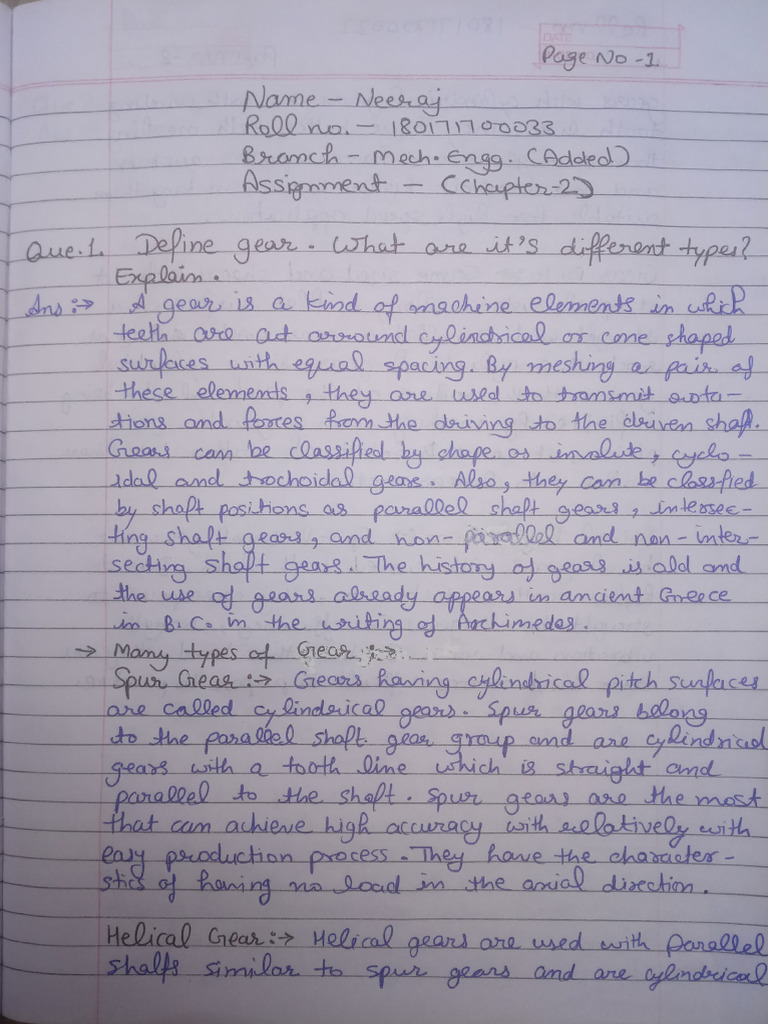 Page No -1
Name - Neeraj
Roll no. - 180171700033
Branch - Mech. Engg. (Added)
Assignment - (Chapter-2)
Que.1. Define gear. What are it's different types?
Explain.
Ans :→ A gear is a kind of machine elements in which
teeth are cut arround cylindrical or cone shaped
surfaces with equal spacing. By meshing a pair of
these elements, they are used to transmit rota-
tions and forces from the driving to the driven shaft.
Gears can be classified by shape as involute, cyclo-
idal and trochoidal gears. Also, they can be classfied
by shaft positions as parallel shaft gears, intersec-
ting shaft gears, and non-parallel and non-inter-
secting shaft gears. The history of gears is old and
the use of gears already appears in ancient Greece
in B.C. in the writing of Archimedes.
→ Many types of Gear :→
Spur Gear :→ Gears having cylindrical pitch surfaces
are called cylinderical gears. Spur gears belong
to the parallel shaft gear group and are cylindrical
gears with a tooth line which is straight and
parallel to the shaft. Spur gears are the most
that can achieve high accuracy with relatively with
easy production process. They have the character-
stics of having no load in the axial direction.
Helical Gear :→ Helical gears are used with Parallel
shalfs similar to spur gears and are cylindrical